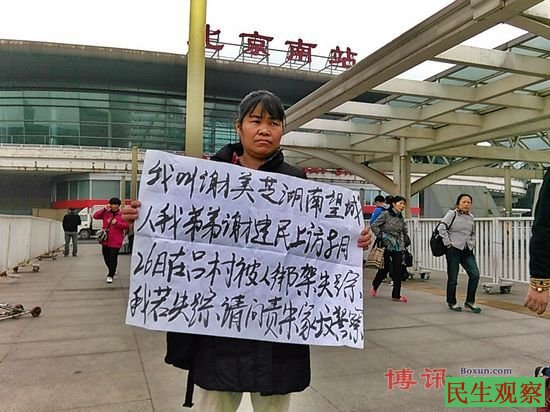 北京南站
我叫谢美芝湖南望城
人我弟弟谢建民上访8月
26日在吕村被人绑架失踪,
我若失踪,请问责朱家坟警察
博讯 Boxun.com
民生观察